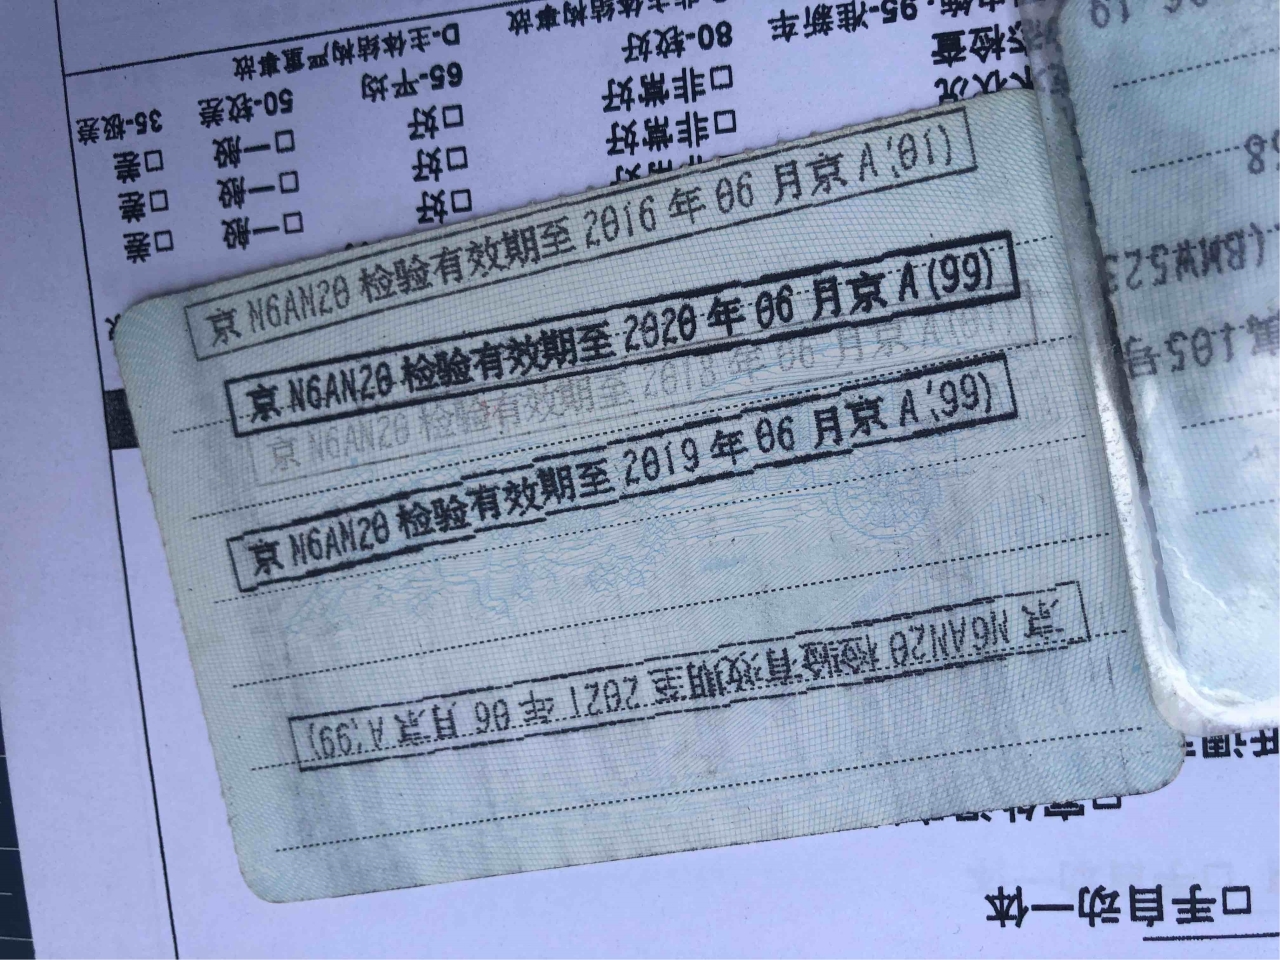 京N6AN20 检验有效期至2016年06月京A(01)
京N6AN20 检验有效期至2020年06月京A(99)
京N6AN20 检验有效期至2018年06月京A
京N6AN20 检验有效期至2019年06月京A(99)
京N6AN20 检验有效期至2021年06月京A(99)
D-主体结构严重事故
35-极差 50-较差 65-平均 80-较好 95-准新车
检查
状况
□差 □一般 □好 □非常好
□差 □一般 □好 □非常好
□差 □一般 □好
(BMW523
105号
□手自动一体